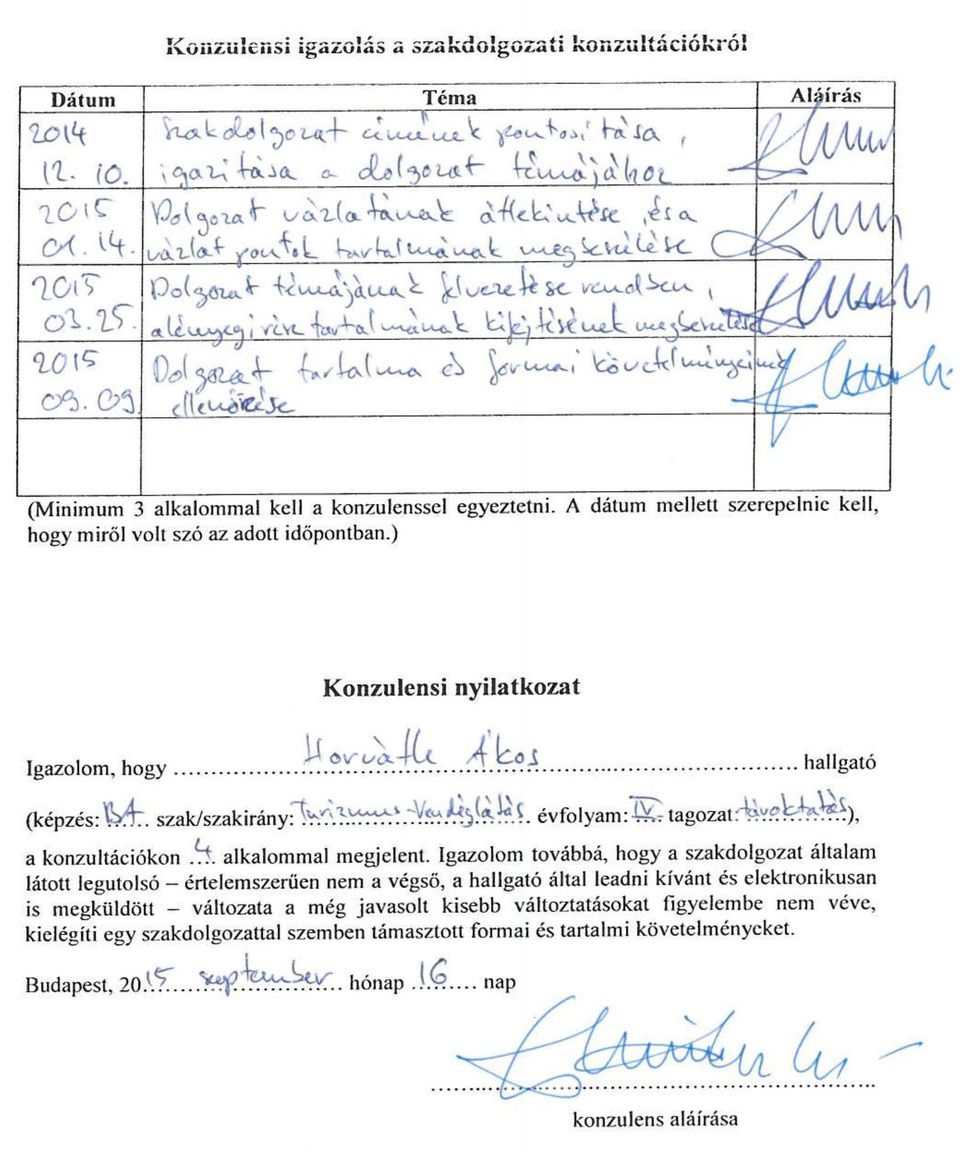 Konzulensi igazolás a szakdolgozati konzultációkról
Dátum Téma Aláírás
2014 Szakdolgozat címének pontosítása,
12. 10. igazítása a dolgozat témájához
2015 Dolgozat vázlatának áttekintése, és a
01. 14. vázlat pontok tartalmának megbeszélése
2015 Dolgozat témájának felvezetése rendben,
03. 25. a lényegi része tartalmának kifejtésének megbeszélése
2015 Dolgozat tartalma és formai követelményeinek
09. 09. ellenőrzése
(Minimum 3 alkalommal kell a konzulenssel egyeztetni. A dátum mellett szerepelnie kell,
hogy miről volt szó az adott időpontban.)
Konzulensi nyilatkozat
Igazolom, hogy Horváth Ákos hallgató
(képzés: BA szak/szakirány: Turizmus-Vendéglátás évfolyam: IV. tagozat: távoktatás),
a konzultációkon 4 alkalommal megjelent. Igazolom továbbá, hogy a szakdolgozat általam
látott legutolsó – értelemszerűen nem a végső, a hallgató által leadni kívánt és elektronikusan
is megküldött – változata a még javasolt kisebb változtatásokat figyelembe nem véve,
kielégíti egy szakdolgozattal szemben támasztott formai és tartalmi követelményeket.
Budapest, 2015 szeptember hónap 16 nap
konzulens aláírása